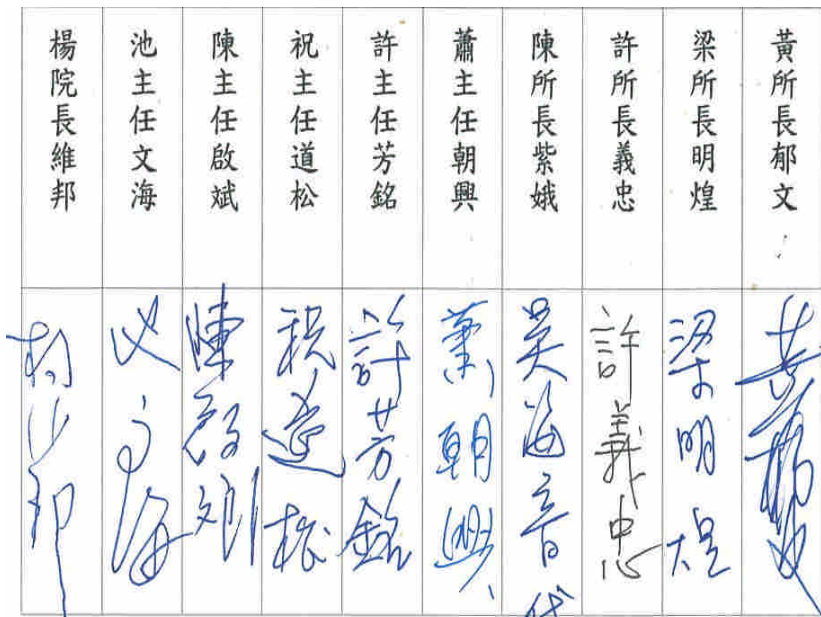 黃所長郁文
梁所長明煌
許所長義忠
陳所長紫娥
蕭主任朝興
許主任芳銘
祝主任道松
陳主任啟斌
池主任文海
楊院長維邦
黃郁文
梁明煌
許義忠
吳海音代
蕭朝興
許芳銘
祝道松
陳啟斌
池文海
楊維邦